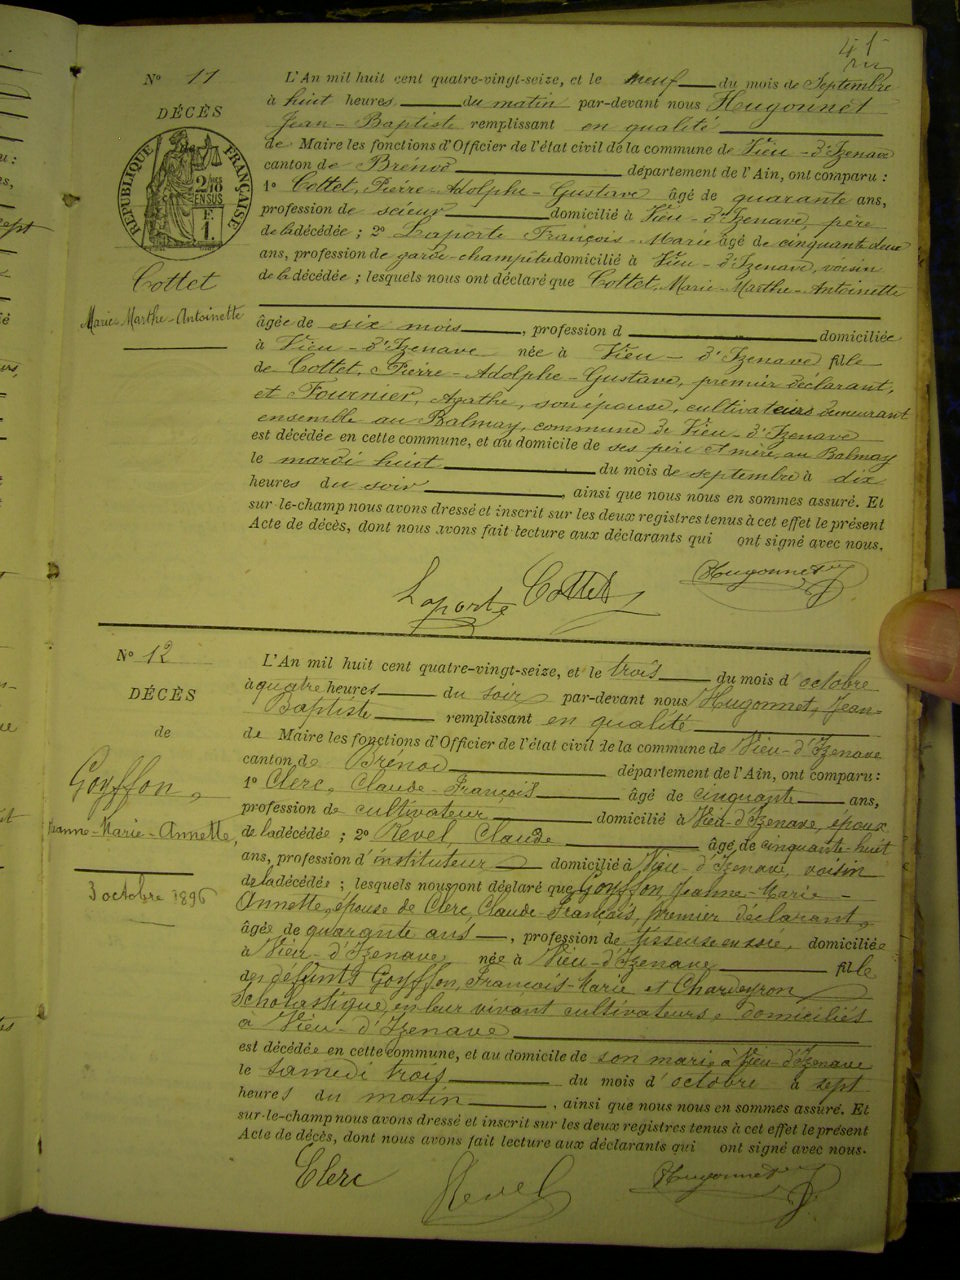 41
N° 11
DÉCÈS
RÉPUBLIQUE FRANÇAISE
2/10
EN SUS
F.
1.
Cottet
Marie-Marthe-Antoinette
L'An mil huit cent quatre-vingt-seize, et le neuf du mois de Septembre
à huit heures du matin par-devant nous Hugonnet
Jean-Baptiste remplissant en qualité
de Maire les fonctions d'Officier de l'état civil de la commune de Vieu-d'Izenave
canton de Brénod département de l'Ain, ont comparu :
1° Cottet, Pierre-Adolphe-Gustave âgé de quarante ans,
profession de scieur domicilié à Vieu-d'Izenave, père
de la décédée ; 2° Laporte François-Marie âgé de cinquante deux
ans, profession de garde-champêtre domicilié à Vieu-d'Izenave, voisin
de la décédée ; lesquels nous ont déclaré que Cottet, Marie-Marthe-Antoinette
âgée de six mois, profession d domiciliée
à Vieu-d'Izenave née à Vieu-d'Izenave fille
de Cottet, Pierre-Adolphe-Gustave, premier déclarant,
et Fournier, Agathe, son épouse, cultivateurs demeurant
ensemble au Balmay, commune de Vieu-d'Izenave
est décédée en cette commune, et au domicile de ses père et mère, au Balmay
le mardi huit du mois de septembre à dix
heures du soir, ainsi que nous nous en sommes assuré. Et
sur-le-champ nous avons dressé et inscrit sur les deux registres tenus à cet effet le présent
Acte de décès, dont nous avons fait lecture aux déclarants qui ont signé avec nous.
Laporte Cottet Hugonnet
N° 12
DÉCÈS
de
Goyffon,
Jeanne-Marie-Annette,
3 octobre 1896
L'An mil huit cent quatre-vingt-seize, et le trois du mois d'octobre
à quatre heures du soir par-devant nous Hugonnet, Jean-
Baptiste remplissant en qualité
de Maire les fonctions d'Officier de l'état civil de la commune de Vieu-d'Izenave
canton de Brénod département de l'Ain, ont comparu :
1° Clerc, Claude-François âgé de cinquante ans,
profession de cultivateur domicilié à Vieu-d'Izenave, époux
de la décédée ; 2° Revel Claude âgé de cinquante-huit
ans, profession d'instituteur domicilié à Vieu-d'Izenave, voisin
de la décédée ; lesquels nous ont déclaré que Goyffon, Jeanne-Marie-
Annette, épouse de Clerc, Claude-François, premier déclarant,
âgée de quarante ans, profession de tisseuse en soie, domiciliée
à Vieu-d'Izenave née à Vieu-d'Izenave fille
des défunts Goyffon, François-Marie et Charveyron
Scholastique, en leur vivant cultivateurs, domiciliés
à Vieu-d'Izenave
est décédée en cette commune, et au domicile de son mari, à Vieu-d'Izenave
le samedi trois du mois d'octobre à sept
heures du matin, ainsi que nous nous en sommes assuré. Et
sur-le-champ nous avons dressé et inscrit sur les deux registres tenus à cet effet le présent
Acte de décès, dont nous avons fait lecture aux déclarants qui ont signé avec nous.
Clerc Revel Hugonnet